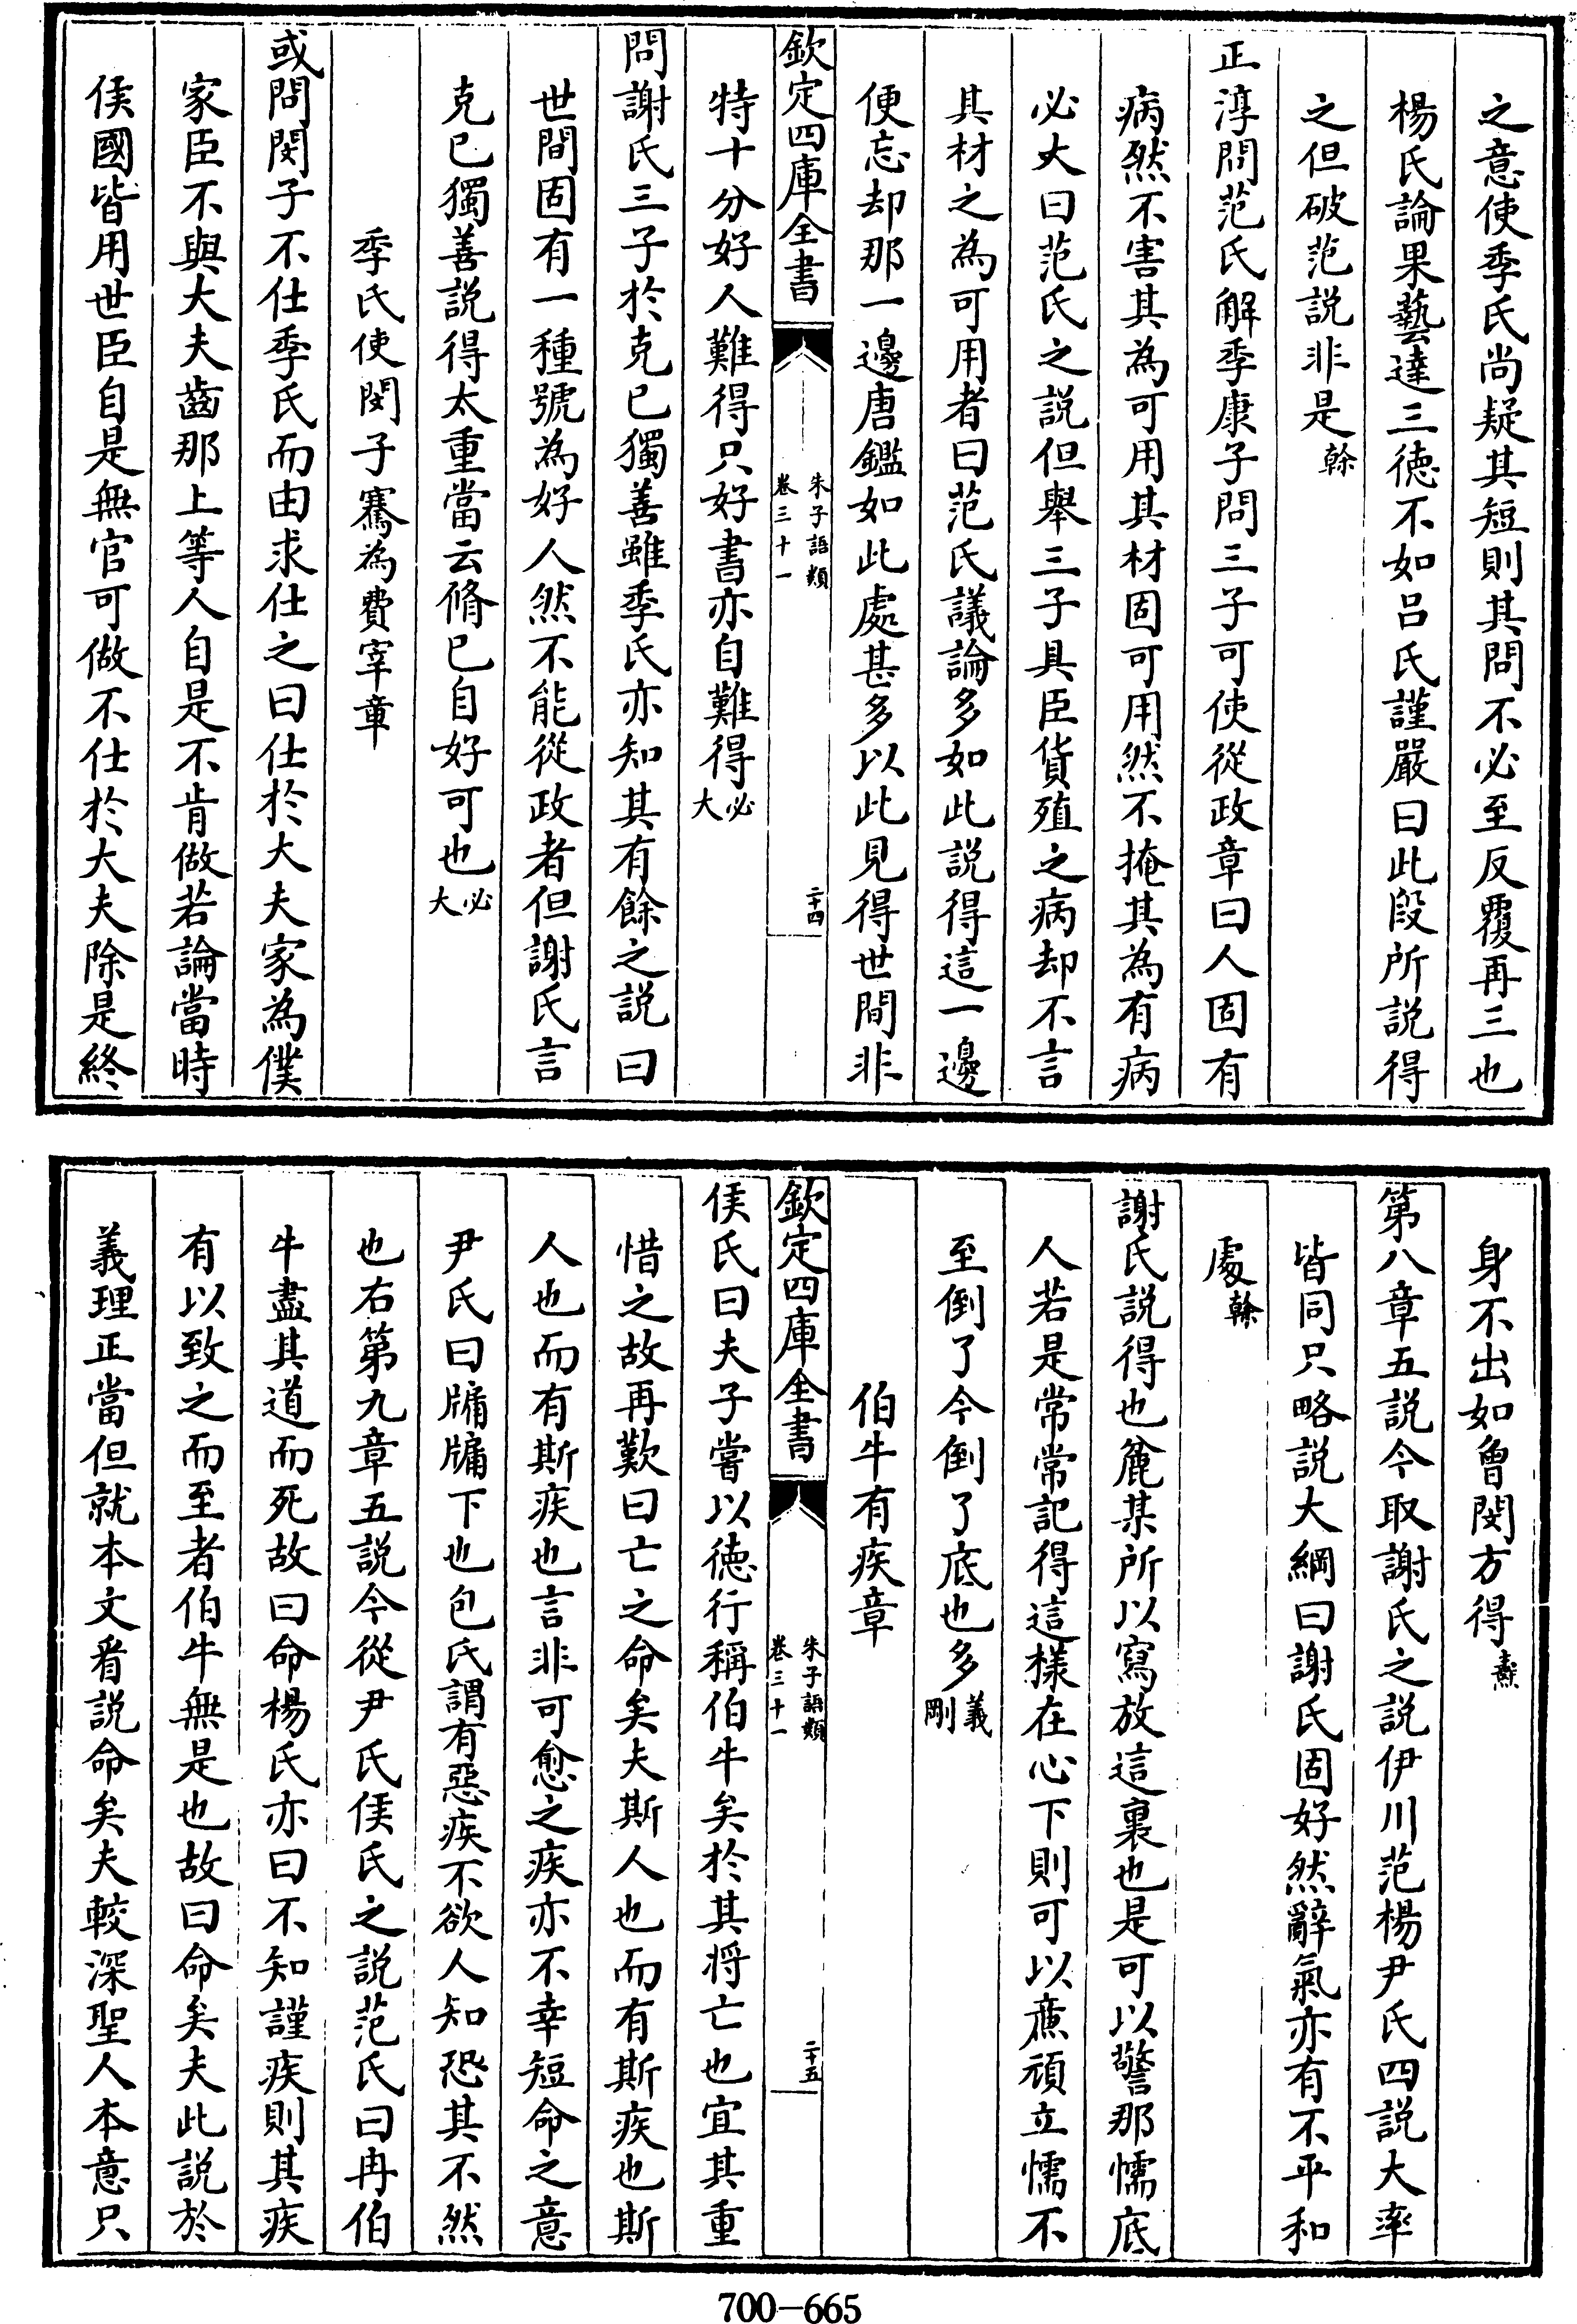 之意使季氏尚疑其短則其問不必至反覆再三也
楊氏論果藝達三徳不如吕氏謹嚴曰此段所説得
之但破范説非是榦
正淳問范氏解季康子問三子可使從政章曰人固有
病然不害其為可用其材固可用然不掩其為有病
必大曰范氏之説但舉三子具臣貨殖之病却不言
其材之為可用者曰范氏議論多如此説得這一邊
便忘却那一邊唐鑑如此處甚多以此見得世間非
欽定四庫全書
朱子語類
卷三十一
二十四
特十分好人難得只好書亦自難得必大
問謝氏三子於克己獨善雖季氏亦知其有餘之説曰
世間固有一種號為好人然不能從政者但謝氏言
克己獨善説得太重當云脩己自好可也必大
季氏使閔子騫為費宰章
或問閔子不仕季氏而由求仕之曰仕於大夫家為僕
家臣不與大夫齒那上等人自是不肯做若論當時
侯國皆用世臣自是無官可做不仕於大夫除是終
身不出如曾閔方得燾
第八章五説今取謝氏之説伊川范楊尹氏四説大率
皆同只略説大綱曰謝氏固好然辭氣亦有不平和
處榦
謝氏説得也麄某所以寫放這裏也是可以警那懦底
人若是常常記得這樣在心下則可以廉頑立懦不
至倒了今倒了底也多義剛
伯牛有疾章
欽定四庫全書
朱子語類
卷三十一
二十五
侯氏曰夫子嘗以徳行稱伯牛矣於其将亡也宜其重
惜之故再歎曰亡之命矣夫斯人也而有斯疾也斯
人也而有斯疾也言非可愈之疾亦不幸短命之意
尹氏曰牖牖下也包氏謂有惡疾不欲人知恐其不然
也右第九章五説今從尹氏侯氏之説范氏曰冉伯
牛盡其道而死故曰命楊氏亦曰不知謹疾則其疾
有以致之而至者伯牛無是也故曰命矣夫此説於
義理正當但就本文㸔説命矣夫較深聖人本意只
700-665